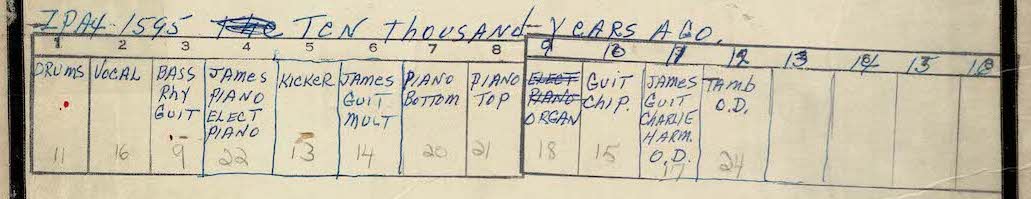 ZPA4-1595 The TEN THOUSAND YEARS AGO.
1 2 3 4 5 6 7 8 9 10 11 12 13 14 15 16
DRUMS
VOCAL
BASS
RHY
GUIT
JAMES
PIANO
ELECT
PIANO
KICKER
JAMES
GUIT
MULT
PIANO
BOTTOM
PIANO
TOP
ELECT
PIANO
ORGAN
GUIT
CHIP.
JAMES
GUIT
CHARLIE
HARM.
O.D.
TAMB
O.D.
11 16 9 22 13 14 20 21 18 15 17 24